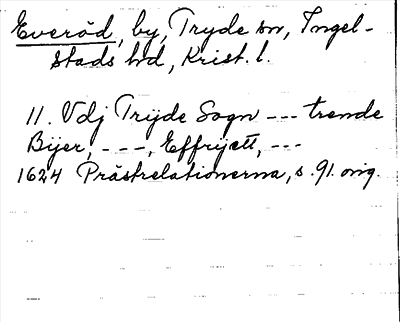 Everöd, by, Tryde sn, Ingel-
stads hd, Krist. l.
11. Vdj Trÿde Sogn --- trende
Bÿer, ---, Effrÿett, ---
1624 Prästrelationerna, s. 91. orig.